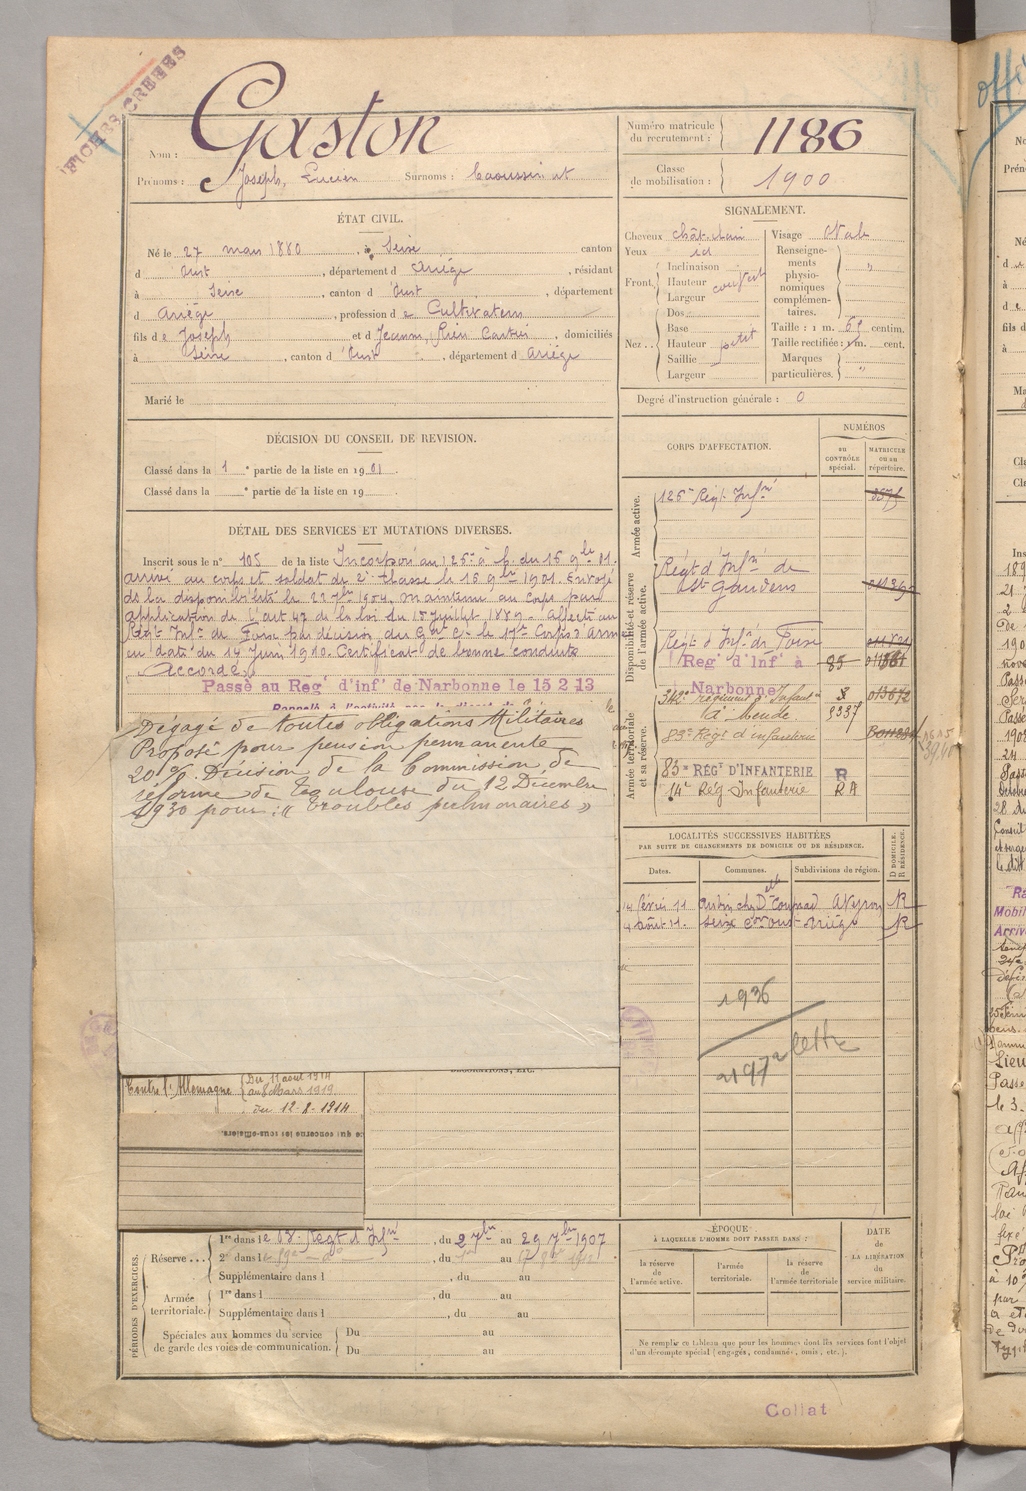 FICHES CRÉÉES
Nom : Gaston
Prénoms : Joseph, Lucien Surnoms :
Numéro matricule du recrutement : 1186
Classe de mobilisation : 1900
ÉTAT CIVIL.
Né le 27 mars 1880, à Seix canton
d Oust, département d Ariége, résidant
à Seix, canton d Oust, département
d Ariége, profession de Cultivateur
fils de Joseph et d Jeanne, domiciliés
à Seix, canton d Oust, département d Ariége
Marié le
SIGNALEMENT.
Cheveux chât. clair
Yeux id
Front. Inclinaison
Hauteur couvert
Largeur
Nez.. Dos
Base
Hauteur petit
Saillie
Largeur
Visage Ovale
Renseignements physionomiques complémentaires. "
Taille : 1 m. 69 centim.
Taille rectifiée : 1 m. cent.
Marques particulières. "
Degré d'instruction générale : 0
DÉCISION DU CONSEIL DE REVISION.
Classé dans la 1e partie de la liste en 1901.
Classé dans la e partie de la liste en 19
DÉTAIL DES SERVICES ET MUTATIONS DIVERSES.
Inscrit sous le n° 105 de la liste Incorporé au 126e à c. du 16 9bre 01.
arrivé au corps et soldat de 2e classe le 16 9bre 1901. Envoyé
de la disponibilité le 22 7bre 1904, maintenu au corps par
application de l'art 47 de la loi du 15 Juillet 1889. Affecté au
Régt Infie de Foix par décision du Gal Ct le 17e Corps d'armée
en date du 14 Juin 1910. Certificat de bonne conduite
Accordé.
Passé au Regt d'inft de Narbonne le 15 2 13
Rappelé à l'activité
Dégagé de toutes obligations Militaires
Proposé pour pension permanente
20 %. Décision de la Commission de
réforme de Toulouse du 12 Décembre
1930 pour : « troubles pulmonaires »
CORPS D'AFFECTATION.
NUMÉROS
au CONTRÔLE spécial.
MATRICULE ou au répertoire.
Armée active.
126e Régt Infie
Disponibilité et réserve de l'armée active.
Régt d'Infie de
St Gaudens
Régt d'Infie de Foix
Regt d'Inft à 85
Narbonne
342e régiment d'Infanie 8 013672
à Mende. 8337
Armée territoriale et sa réserve.
83e Régt d'infanterie
83e RÉGt D'INFANTERIE R
14e Rég Infanterie RA
LOCALITÉS SUCCESSIVES HABITÉES
PAR SUITE DE CHANGEMENTS DE DOMICILE OU DE RÉSIDENCE.
Dates. Communes. Subdivisions de région. D DOMICILE. R RÉSIDENCE.
14 février 11 Aubin Aveyron R
4 Août 11. Seix con Oust Ariége R
1936
2197
lettre
Contre l'Allemagne
Du 11 août 1914
au 8 Mars 1919.
du 12-8-1914
ce qui concerne les sous-officiers.
DÉCORATIONS, ETC.
PÉRIODES D'EXERCICES.
Réserve... 1re dans le 83e Régt d'Infie, du 2 7bre au 29 7bre 1907
2e dans le 89e - do -, du au
Supplémentaire dans l, du au
Armée territoriale. 1re dans l, du au
Supplémentaire dans l, du au
Spéciales aux hommes du service de garde des voies de communication. Du au
Du au
ÉPOQUE
À LAQUELLE L'HOMME DOIT PASSER DANS :
la réserve de l'armée active.
l'armée territoriale.
la réserve de l'armée territoriale
DATE de LA LIBÉRATION du service militaire.
Ne remplir ce tableau que pour les hommes dont les services font l'objet
d'un décompte spécial (engagés, condamnés, omis, etc.).
Collat